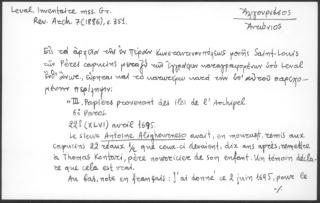 Leval, Inventaire mss. Gr.
Rev. Arch. 7 (1886), σ. 351.
Ἀλγουρέζος
Ἀντώνιος
Εἰς τὸ ἀρχεῖον τῆς ἐν Πέραν Κωνσταντινουπόλεως μονῆς Saint-Louis
τῶν Pères capucins μεταξὺ τῶν ἐγγράφων καταγραφομένων ὑπὸ Leval
ἔνθ' ἀνωτ., εὕρηται καὶ τὸ κατωτέρω κατὰ τὴν ὑπ' αὐτοῦ παρεχο-
μένην περίληψιν:
"III. Papiers provenant des îles de l'Archipel
6) Paros
22) (XLVI) avril 1695.
Le sieur Antoine Alighoureso avait, en mourant, remis aux
capucins 22 réaux ½ que ceux-ci devaient, dix ans après, remettre
à Thomas Kontari, père nourricier de son enfant. Un témoin décla-
re que cela est vrai.
Au bas, note en français: j'ai donné ce 2 juin 1695, pour le
./.